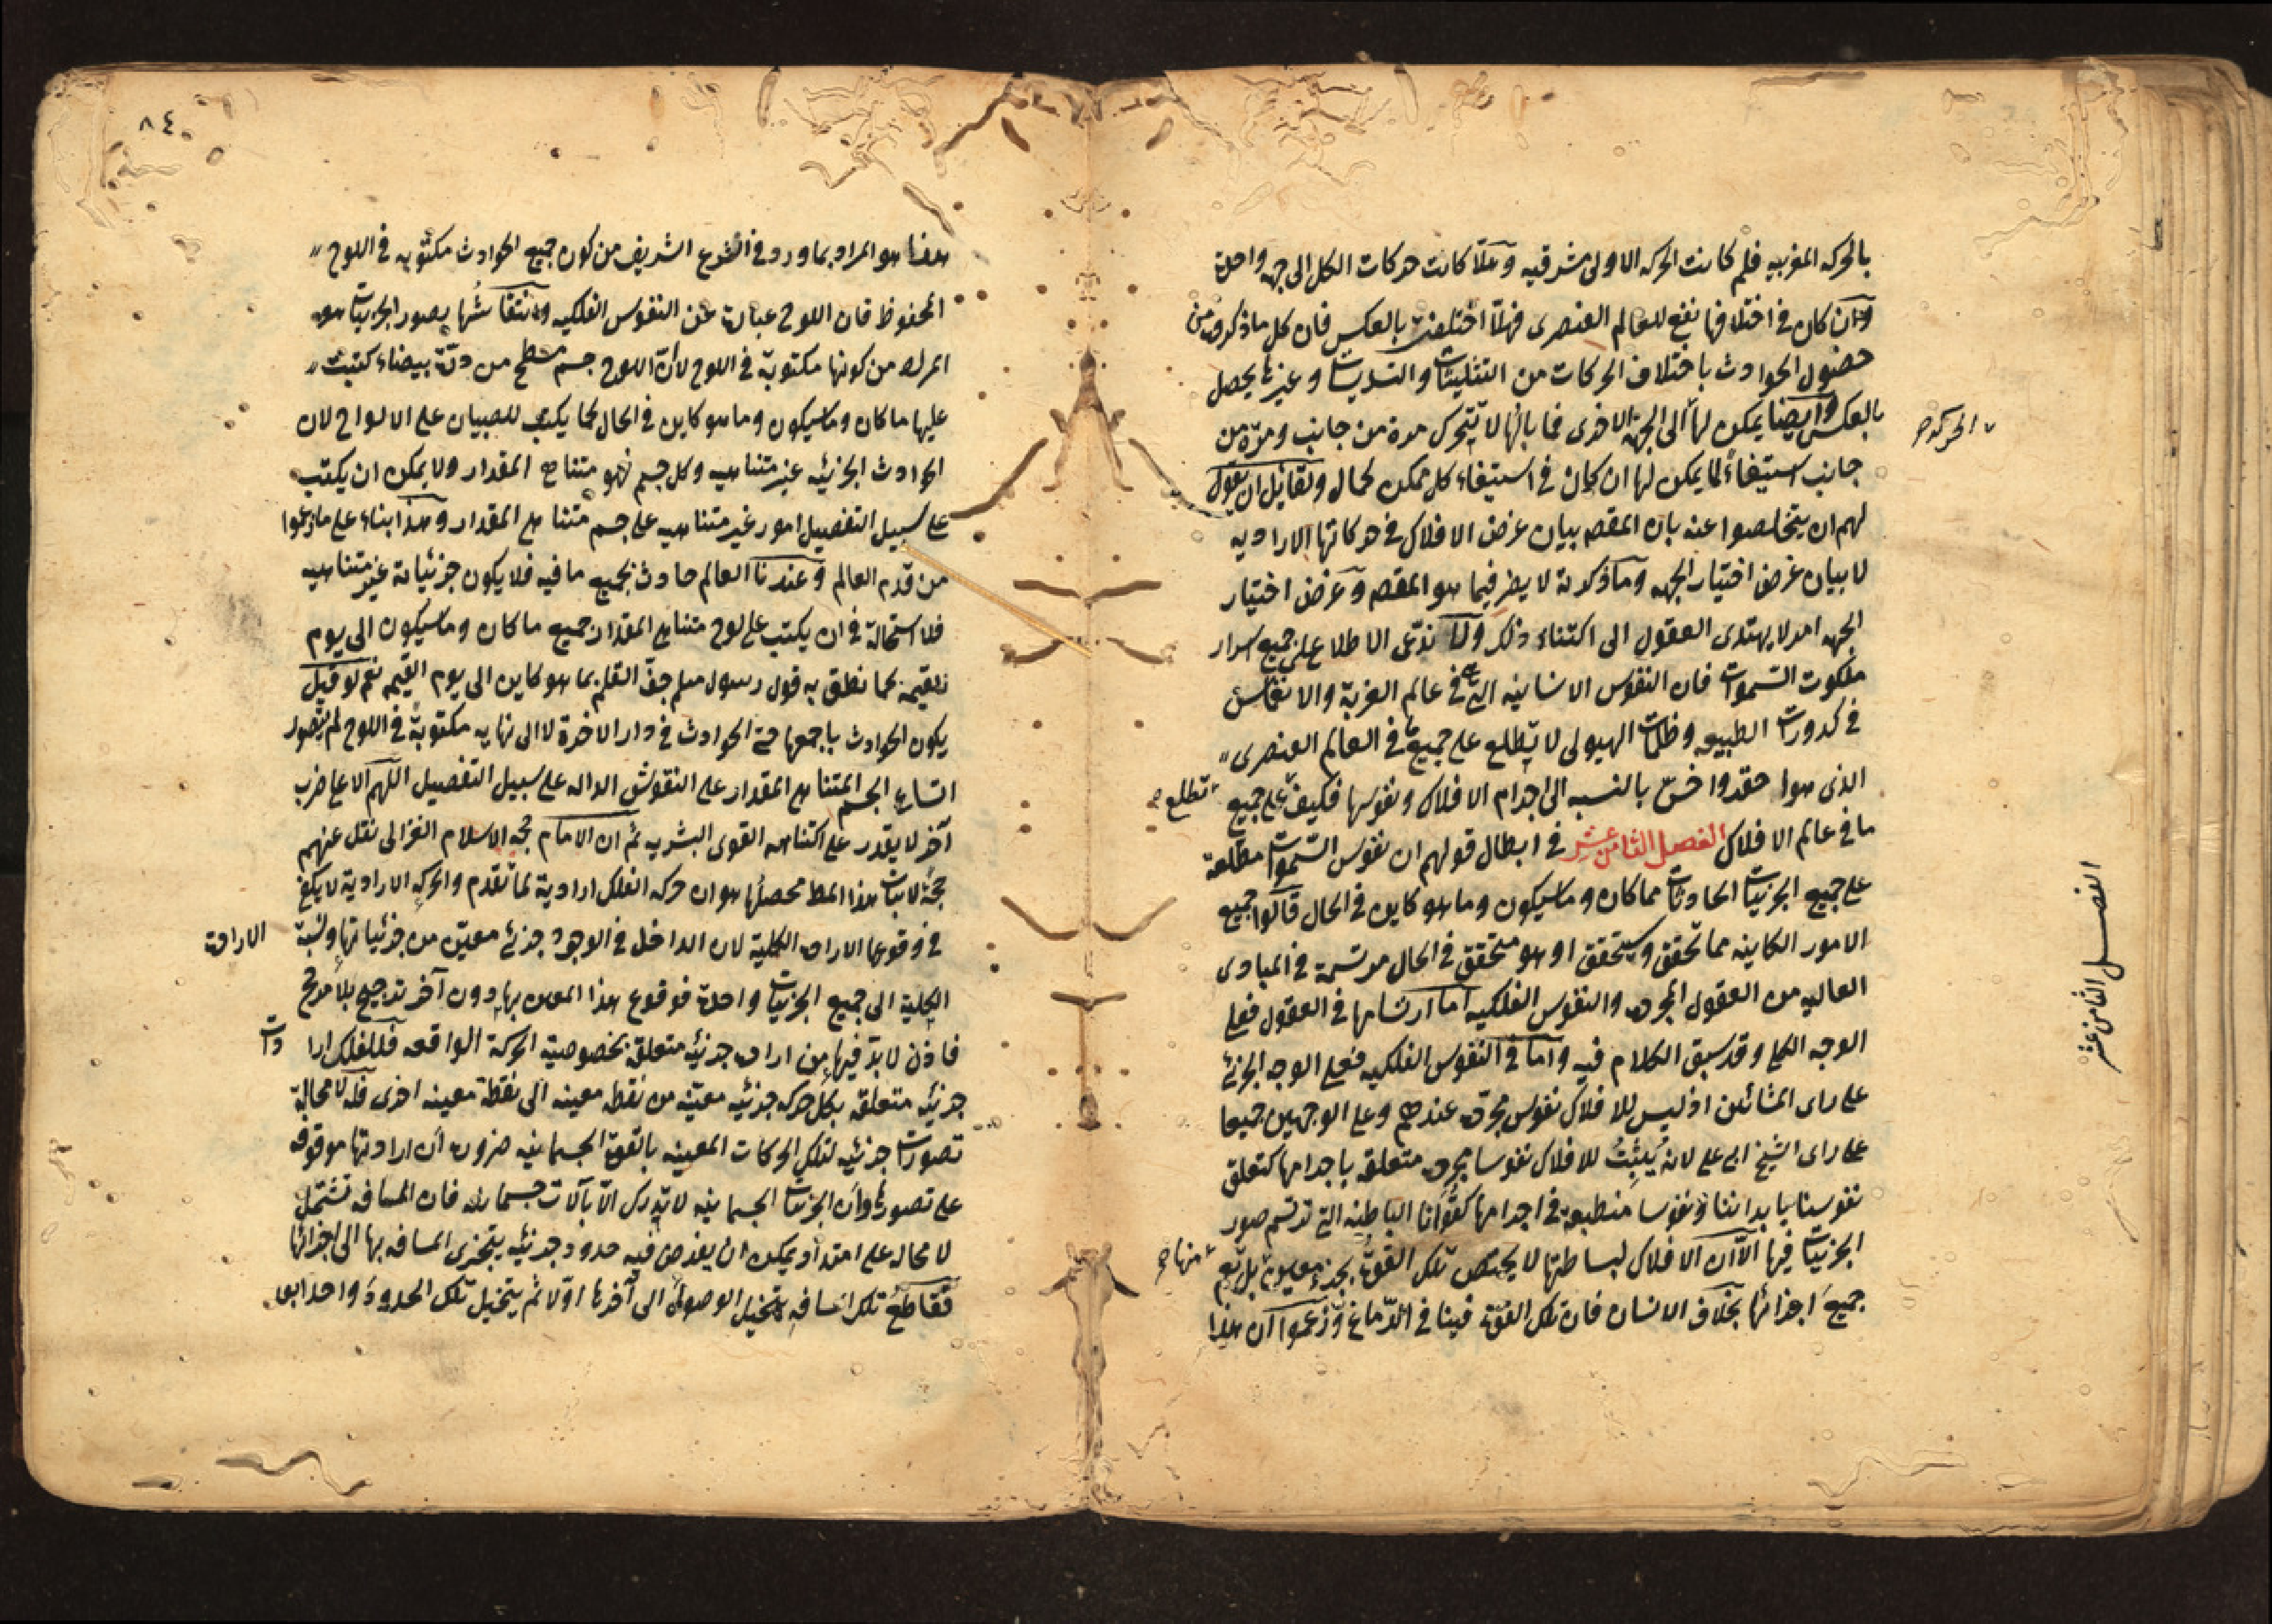 بالحركه المغربيه فلم كانت الحركه الاولى مشرقيه وهلّا كانت حركات الكل الى جهه واحدة
وان كان فى اختلافها نفع للعالم العنصرى فهلّا اختلفت بالعكس فان كل ما ذكروه من
حصول الحوادث باختلاف الحركات من التثليثات والتسديسات وغيرها يحصل
بالعكس وايضا يمكن لها الى الجهة الاخرى فما بالها لا تتحرك مرة من جانب ومرّة من
الحركه صح
جانب استيفاءً لما يمكن لها ان كان فى استيفاء كل ممكن كمال ولقائل ان يقول
لهم ان يتخلصوا عنه بان المقصد بيان غرض الافلاك فى حركاتها الاراديه
لا بيان غرض اختيار الجهه وما ذكرتم لا يضر فيما هو المقصد وغرض اختيار
الجهه امر لا يهتدى العقول الى اكتناه ذلك ولا ندّعى الاطلاع على جميع اسرار
ملكوت السموات فان النفوس الانسانيه التى هى فى عالم الغربة والانغماس
فى كدورات الطبيعه وظلمات الهيولى لا يطلع على جميع ما فى العالم العنصرى
الذى هو احقر واخسّ بالنسبه الى اجرام الافلاك ونفوسها فكيف على جميع
تطلع صح
ما فى عالم الافلاك الفصل الثامن عشر فى ابطال قولهم ان نفوس السموات مطلعة
على جميع الجزئيات الحادثات مما كان وما سيكون وما هو كاين فى الحال قالوا جميع
الامور الكاينه مما تحقق وسيتحقق او هو متحقق فى الحال مرتسمة فى المبادى
العاليه من العقول المجرده والنفوس الفلكيه اما ارتسامها فى العقول فعلى
الوجه الكلى وقد سبق الكلام فيه واما فى النفوس الفلكيه فعلى الوجه الجزئى
على راى المشائين اذ ليس للافلاك نفوس مجرده عندهم وعلى الوجهين جميعا
على راى الشيخ ابى على لانه يُثبِتُ للافلاك نفوسا مجرده متعلقه باجرامها كتعلق
نفوسنا بابداننا ونفوسا منطبعة فى اجرامها كقُوانا الباطِنه التى ترتسم صور
الجزئيات فيها الّا ان الافلاك لبساطتها لا يختص تلك القوة بجزء معين بل تعم
منها صح
جميعَ اجزائها بخلاف الانسان فان تلك القوة فينا فى الدّماغ وزعموا ان هذا
الفصل الثامن عشر
٨٤
هذا هو المراد بما ورد فى الشرع الشريف من كون جميع الحوادث مكتوبه فى اللوح
المحفوظ فان اللوح عبارة عن النفوس الفلكيه وانتقاشُها بصور الجزئيات هو
المراد من كونها مكتوبة فى اللوح لا انّ اللوح جسم مسطح من درّة بيضاء كتبت
عليها ما كان وما سيكون وما هو كاين فى الحال كما يكتب للصبيان على الالواح لان
الحوادث الجزئيه غير متناهيه وكل جسم فهو متناهى المقدار ولا يمكن ان يكتب
على سبيل التفصيل امور غير متناهيه على جسم متناهى المقدار وهذا بناء على ما زعموا
من قدم العالم وعندنا العالم حادث بجميع ما فيه فلا يكون جزئياته غير متناهيه
فلا استحالة فى ان يكتب على لوح متناهى المقدار جميع ما كان وما سيكون الى يوم
القيمه كما نطق به قول رسول صلعم جفّ القلم بما هو كاين الى يوم القيمه نعم لو قيل
يكون الحوادث باجمعها حتى الحوادث فى دار الاخرة لا الى نهايه مكتوبةً فى اللوح لم يتصور
اتساع الجسم المتناهى المقدار على النقوش الداله على سبيل التفصيل اللّهم الا على ضرب
آخر لا يقدر على اكتناهه القوى البشريه ثم ان الامام حجه الاسلام الغزالى نقل عنهم
حجّةً لاثبات هذا المط محصلُها هو ان حركه الفلك ارادية لما تقدم والحركه الارادية لا يكفى
فى وقوعها الاراده الكلية لان الداخل فى الوجود جزئى معيّن من جزئياتها ونسبة
الارادة
الكلية الى جميع الجزئيات واحدة فوقوع هذا المعين بها دون آخر ترجيح بلا مرجّح
فاذن لا بدّ فيها من اراده جزئيه متعلقة بخصوصية الحركة الواقعه فللفلك ارا
دات
جزئيه متعلقه بكل حركه جزئيه معيّنه من نقطه معينه الى نقطة معينه اخرى فله لا محالة
تصورات جزئيه لتلك الحركات المعينه بالقوة الجسمانيه ضرورة ان ارادتها موقوفه
على تصورها وان الجزئيات الجسمانيه لا تدرك الّا بآلات جسمانيه فان المسافه تشتمل
لا محاله على امتداد يمكن ان يفرض فيه حدود جزئيه يتجزى المسافه بها الى اجزائها
فقاطعُ تلك المسافه يتخيل الوصولَ الى آخرها اوّلا ثم يتخيل تلك الحدودَ واحدا بعد